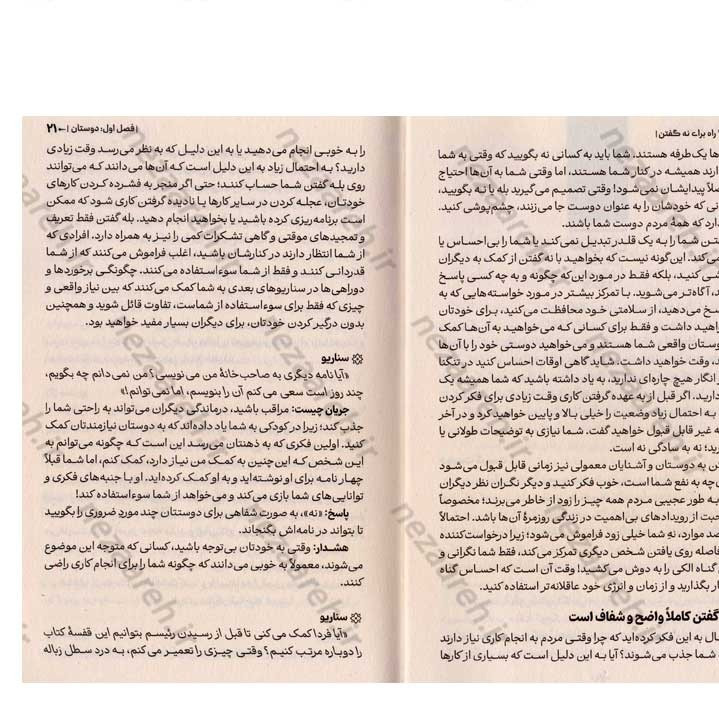 راه برای نه گفتن |
ها یک‌طرفه هستند، شما باید به کسانی نه بگویید که وقتی به شما
ارند همیشه در کنار شما هستند، اما وقتی شما به آن‌ها احتیاج
ملاً پیدایشان نمی‌شود! وقتی تصمیم می‌گیرید بله یا نه بگویید،
نی که خودشان را به عنوان دوست جا می‌زنند، چشم‌پوشی کنید.
دارد که همهٔ مردم دوست شما باشند.
تن شما را به یک قلدر تبدیل نمی‌کند یا شما را بی‌احساس یا
می‌کند. این‌گونه نیست که بخواهید با نه گفتن از کمک به دیگران
شی کنید، بلکه فقط در مورد این‌که چگونه و به چه کسی پاسخ
د، آگاه‌تر می‌شوید. با تمرکز بیشتر در مورد خواسته‌هایی که به
سخ می‌دهید، از سلامتی خود محافظت می‌کنید، برای خودتان
اهید داشت و فقط برای کسانی که می‌خواهید به آن‌ها کمک
وستان واقعی شما هستند و می‌خواهید دوستی خود را با آن‌ها
د، وقت خواهید داشت. شاید گاهی اوقات احساس کنید در تنگنا
انگار هیچ چاره‌ای ندارید، به یاد داشته باشید که شما همیشه یک
دارید. اگر قبل از به عهده گرفتن کاری وقت زیادی برای فکر کردن
به احتمال زیاد وضعیت را خیلی بالا و پایین خواهید کرد و در آخر
ه غیر قابل قبول خواهید گفت. شما نیازی به توضیحات طولانی یا
رید؛ نه به سادگی نه است.
تن به دوستان و آشنایان معمولی نیز زمانی قابل قبول می‌شود
ن‌چه به نفع شما است، خوب فکر کنید و دیگر نگران نظر دیگران
به طور عجیبی مردم همه چیز را زود از خاطر می‌برند؛ مخصوصاً
حبت از رویدادهای بی‌اهمیت در زندگی روزمرهٔ آن‌ها باشد. احتمالاً
صد موارد، نهِ شما خیلی زود فراموش می‌شود؛ زیرا درخواست‌کننده
فاصله روی یافتن شخص دیگری تمرکز می‌کند، فقط شما نگرانی و
گناه الکی را به دوش می‌کشید! وقت آن است که احساس گناه
ار بگذارید و از زمان و انرژی خود عاقلانه‌تر استفاده کنید.
گفتن کاملاً واضح و شفاف است
ال به این فکر کرده‌اید که چرا وقتی مردم به انجام کاری نیاز دارند
ه شما جذب می‌شوند؟ آیا به این دلیل است که بسیاری از کارها
| فصل اول: دوستان | ۲۱
را به خوبی انجام می‌دهید یا به این دلیل که به نظر می‌رسد وقت زیادی
دارید؟ به احتمال زیاد به این دلیل است که آن‌ها می‌دانند که می‌توانند
روی بله گفتن شما حساب کنند؛ حتی اگر منجر به فشرده کردن کارهای
خودتان، عجله کردن در سایر کارها یا نادیده گرفتن کاری شود که ممکن
است برنامه‌ریزی کرده باشید یا بخواهید انجام دهید. بله گفتن فقط تعریف
و تمجیدهای موقتی و گاهی تشکرات کمی را نیز به همراه دارد. افرادی که
از شما انتظار دارند در کنارشان باشید، اغلب فراموش می‌کنند که از شما
قدردانی کنند و فقط از شما سوءاستفاده می‌کنند. چگونگی برخوردها و
دوراهی‌ها در سناریوهای بعدی به شما کمک می‌کنند که بین نیاز واقعی و
چیزی که فقط برای سوءاستفاده از شماست، تفاوت قائل شوید و همچنین
بدون درگیر کردن خودتان، برای دیگران بسیار مفید خواهید بود.
سناریو
«آیا نامه دیگری به صاحب‌خانهٔ من می‌نویسی؟ من نمی‌دانم چه بگویم،
چند روز است سعی می‌کنم آن را بنویسم، اما نمی‌توانم!»
جریان چیست: مراقب باشید، درماندگی دیگران می‌تواند به راحتی شما را
جذب کند؛ زیرا در کودکی به شما یاد داده‌اند که به دوستان نیازمندتان کمک
کنید. اولین فکری که به ذهنتان می‌رسد این است که چگونه می‌توانم به
این شخص که این‌چنین به کمک من نیاز دارد، کمک کنم، اما شما قبلاً
چهار نامه برای او نوشته‌اید و به او کمک کرده‌اید. او با جنبه‌های فکری و
توانایی‌های شما بازی می‌کند و می‌خواهد از شما سوءاستفاده کند!
پاسخ: «نه»، به صورت شفاهی برای دوستتان چند موردِ ضروری را بگویید
تا بتواند در نامه‌اش بگنجاند.
هشدار: وقتی به خودتان بی‌توجه باشید، کسانی که متوجه این موضوع
می‌شوند، معمولاً به خوبی می‌دانند که چگونه شما را برای انجام کاری راضی
کنند.
سناریو
«آیا فردا کمک می‌کنی تا قبل از رسیدن رئیسم بتوانیم این قفسهٔ کتاب
را دوباره مرتب کنیم؟ وقتی چیزی را تعمیر می‌کنم، به درد سطل زباله
nezareh.ir